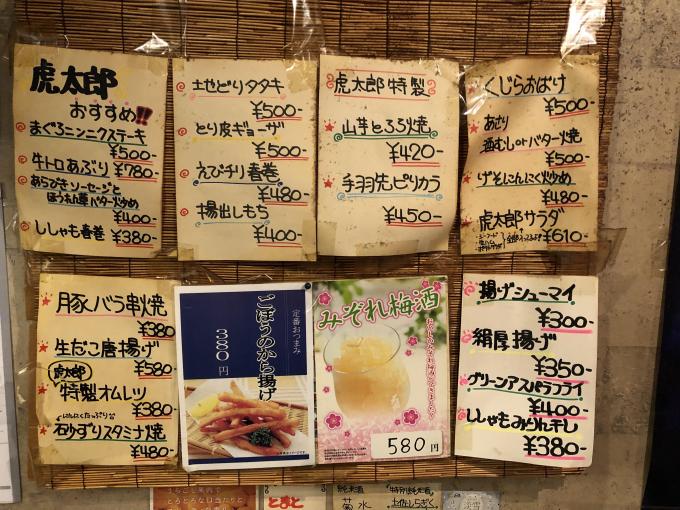 虎太郎
おすすめ!!
まぐろニンニクステーキ
¥500-
牛トロあぶり ¥780-
あらびきソーセージと
ほうれん草バター炒め
¥400-
ししゃも春巻 ¥380-
地どりタタキ
¥500-
とり皮ギョーザ
¥500-
えびチリ春巻
¥480-
揚出しもち
¥400-
虎太郎特製
山芋とろろ焼
¥420-
手羽先ピリカラ
¥450-
くじらおばけ
¥500-
あさり
酒むしorバター焼
¥500-
げそにんにく炒め
¥480-
虎太郎サラダ
¥610-
豚バラ串焼
¥380
生だこ唐揚げ
¥580
虎太郎
特製オムレツ
¥380-
にんにくたっぷり
砂ずりスタミナ焼
¥480-
定番おつまみ
ごぼうのから揚げ
380円
みぞれ梅酒
580円
揚げシューマイ
¥300-
絹厚揚げ
¥350-
グリーンアスパラフライ
¥400-
ししゃもみりん干し
¥380-
純米酒
菊水
特別純米酒